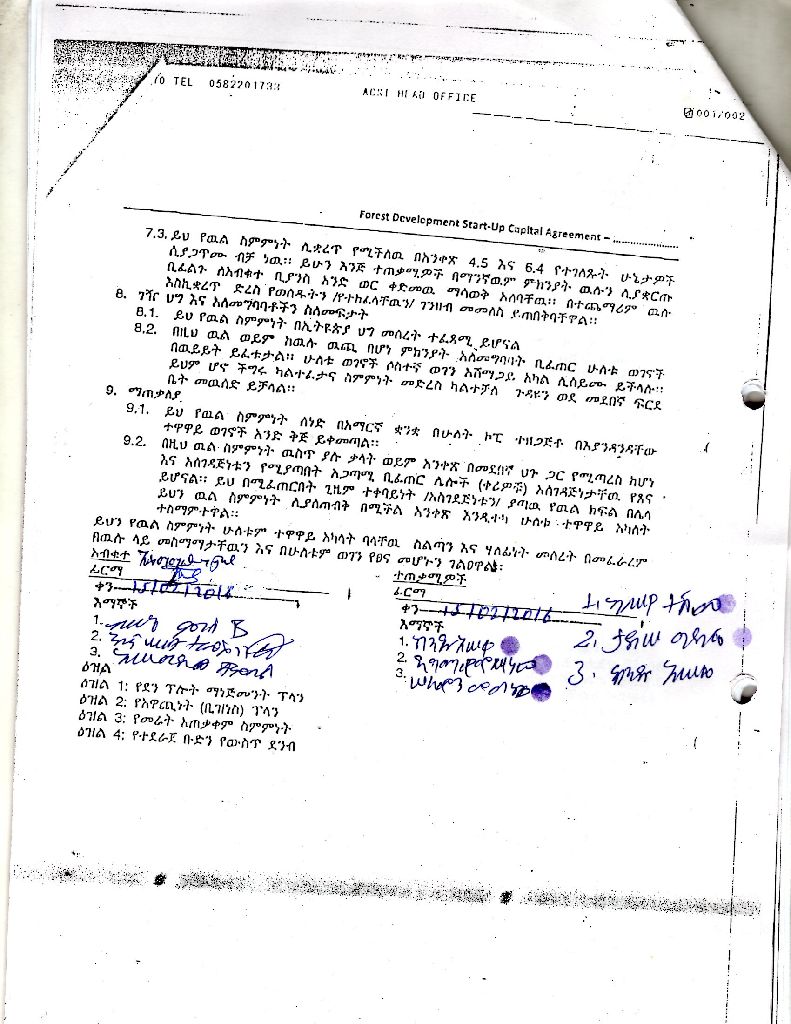 TO TEL 0582201733 ACSI HEAD OFFICE 001/002
Forest Development Start-Up Capital Agreement – ......................
7.3. ይህ የዉል ስምምነት ሊቋረጥ የሚችለዉ በአንቀጽ 4.5 እና 6.4 የተገለጹት ሁኔታዎች
ሲያጋጥሙ ብቻ ነዉ። ይሁን እንጅ ተጠቃሚዎች በማንኛዉም ምክንያት ዉሉን ሲያቋርጡ
ቢፈልጉ ለአብቁተ ቢያንስ አንድ ወር ቀድመዉ ማሳወቅ አለባቸዉ። በተጨማሪም ዉሉ
እስኪቋረጥ ድረስ የወሰዱትን /የተከፈላቸዉን/ ገንዘብ መመለስ ይጠበቅባቸዋል።
8. ገዥ ህግ እና አለመግባባቶችን ስለመፍታት
8.1. ይህ የዉል ስምምነት በኢትዮጵያ ህግ መሰረት ተፈጻሚ ይሆናል
8.2. በዚህ ዉል ወይም ከዉሉ ዉጪ በሆነ ምክንያት አለመግባባት ቢፈጠር ሁለቱ ወገኖች
በዉይይት ይፈቱታል። ሁለቱ ወገኖች ሶስተኛ ወገን አሸማጋይ አካል ሊሰይሙ ይችላሉ።
ይህም ሆኖ ችግሩ ካልተፈታና ስምምነት መድረስ ካልተቻለ ጉዳዩን ወደ መደበኛ ፍርድ
ቤት መዉሰድ ይቻላል።
9. ማጠቃለያ
9.1. ይህ የዉል ስምምነት ሰነድ በአማርኛ ቋንቋ በሁለት ኮፒ ተዘጋጅቶ በእያንዳንዳቸው
ተዋዋይ ወገኖች አንድ ቅጅ ይቀመጣል።
9.2. በዚህ ዉል ስምምነት ዉስጥ ያሉ ቃላት ወይም አንቀጽ በመደበኛ ህጉ ጋር የሚጣረስ ከሆነ
እና አስገዳጅነቱን የሚያጣበት አጋጣሚ ቢፈጠር ሌሎች (ቀሪዎች) አስገዳጅነታቸዉ የጸና
ይሆናል። ይህ በሚፈጠርበት ጊዜም ተቀባይነት /አስገደጅነቱን/ ያጣዉ የዉል ክፍል በሌላ
ይህን ዉል ስምምነት ሊያስጠብቅ በሚችል አንቀጽ እንዲተካ ሁለቱ ተዋዋይ አካላት
ተስማምተዋል።
ይህን የዉል ስምምነት ሁለቱም ተዋዋይ አካላት ባላቸዉ ስልጣን እና ሃላፊነት መሰረት በመፈራረም
በዉሉ ላይ መስማማታቸዉን እና በሁለቱም ወገን የፀና መሆኑን ገልፀዋል፡
አብቁተ
ፊርማ
ቀን 15/02/2016
እማኞች
1. B
2.
3.
ተጠቃሚዎች
ፊርማ
ቀን 15/02/2016
እማኞች
1.
2.
3.
1.
2.
3.
ዕዝል
ዕዝል 1: የደን ፕሎት ማኔጅመንት ፕላን
ዕዝል 2: የአዋጪነት (ቢዝነስ) ፕላን
ዕዝል 3: የመሬት አጠቃቀም ስምምነት
ዕዝል 4: የተደራጀ ቡድን የውስጥ ደንብ